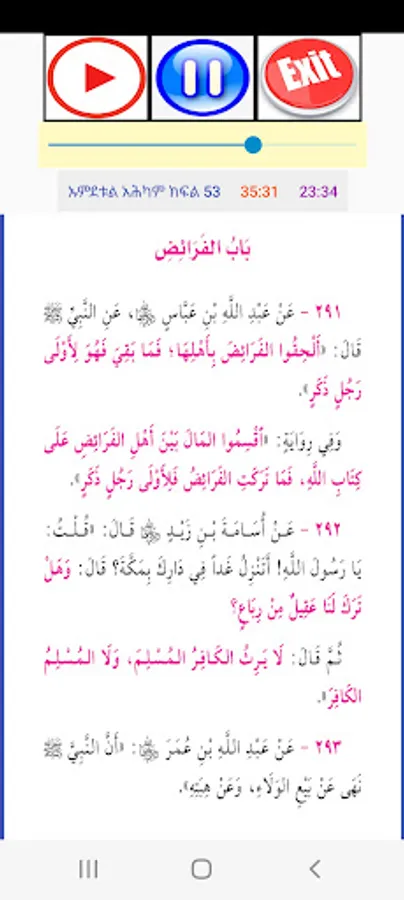 Exit
ኡምደቱል አሕካም ክፍል 53 35:31 23:34
بَابُ الفَرَائِضِ
٢٩١ - عَنْ عَبْدِ اللَّهِ بْنِ عَبَّاسٍ ﷺ، عَنِ النَّبِيِّ ﷺ
قَالَ: «أَلْحِقُوا الفَرَائِضَ بِأَهْلِهَا؛ فَمَا بَقِيَ فَهُوَ لِأَوْلَى
رَجُلٍ ذَكَرٍ».
وَفِي رِوَايَةٍ: «اقْسِمُوا المَالَ بَيْنَ أَهْلِ الفَرَائِضِ عَلَى
كِتَابِ اللَّهِ، فَمَا تَرَكَتِ الفَرَائِضُ فَلِأَوْلَى رَجُلٍ ذَكَرٍ».
٢٩٢ - عَنْ أُسَامَةَ بْنِ زَيْدٍ قَالَ: «قُلْتُ:
يَا رَسُولَ اللَّهِ! أَتَنْزِلُ غَداً فِي دَارِكَ بِمَكَّةَ؟ قَالَ: وَهَلْ
تَرَكَ لَنَا عَقِيلٌ مِنْ رِبَاعٍ؟
ثُمَّ قَالَ: لَا يَرِثُ الكَافِرُ المُسْلِمَ، وَلَا المُسْلِمُ
الكَافِرَ».
٢٩٣ - عَنْ عَبْدِ اللَّهِ بْنِ عُمَرَ: «أَنَّ النَّبِيَّ ﷺ
نَهَى عَنْ بَيْعِ الوَلَاءِ، وَعَنْ هِبَتِهِ».